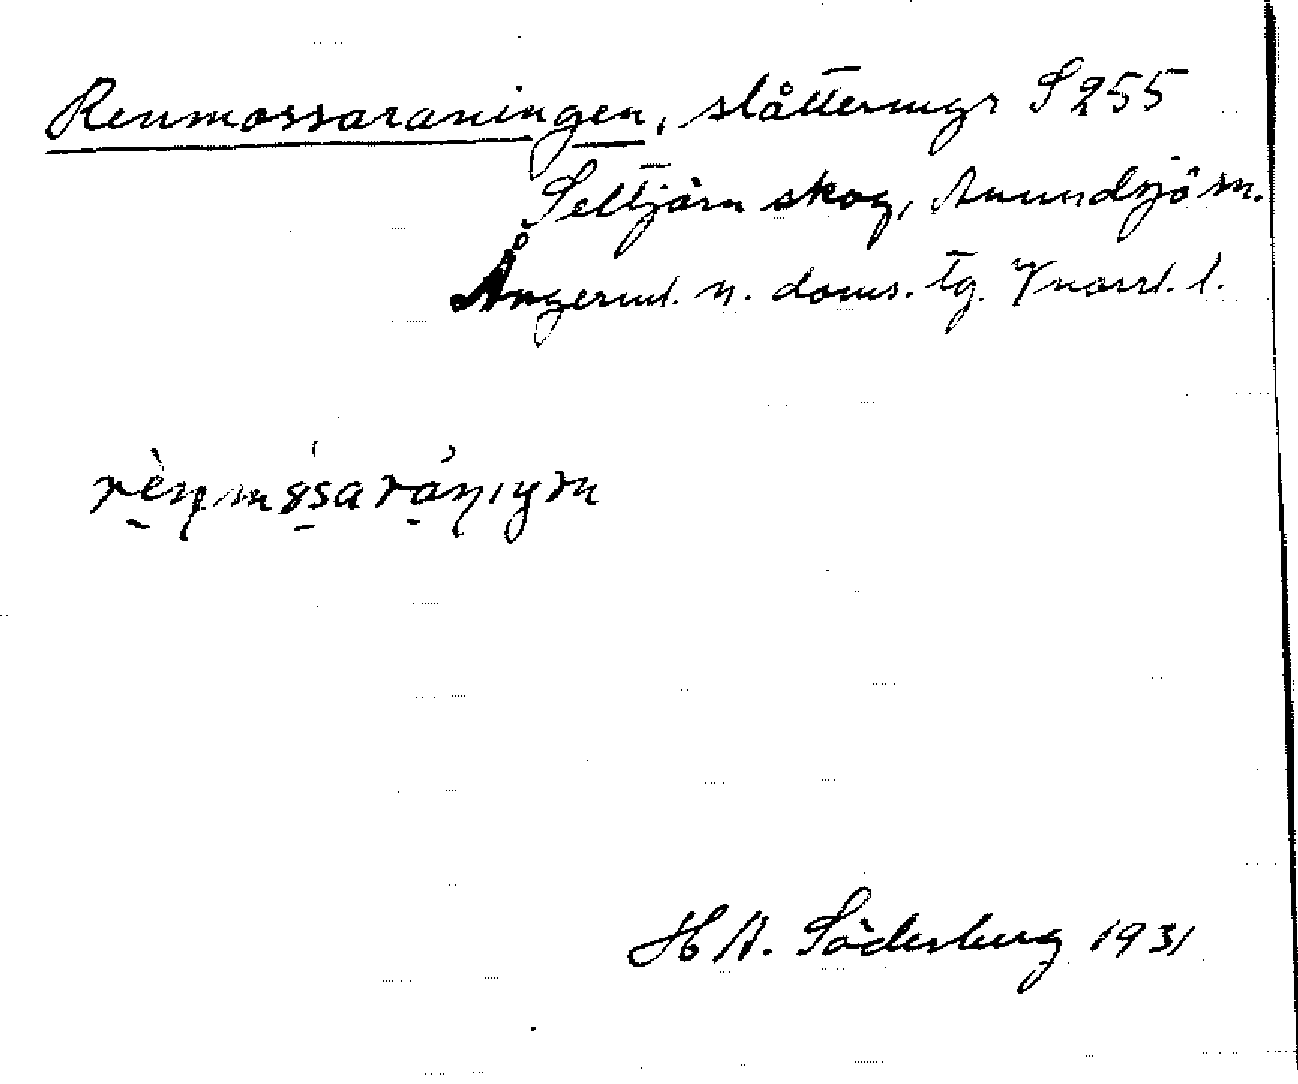 Renmossaraningen, slåttermyr S 255
Seltjärn skog, Anundsjö sn.
Ångerml. n. doms. tg. Vnorrl. l.
rènmósaránıŋɜn
H A. Söderberg 1931